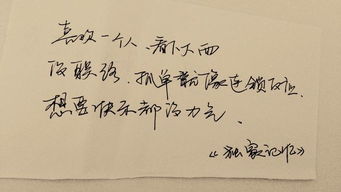 喜欢一个人、看下大雨
没联络.孤单就像连锁反应.
想要快乐都没力气.
《独家记忆》